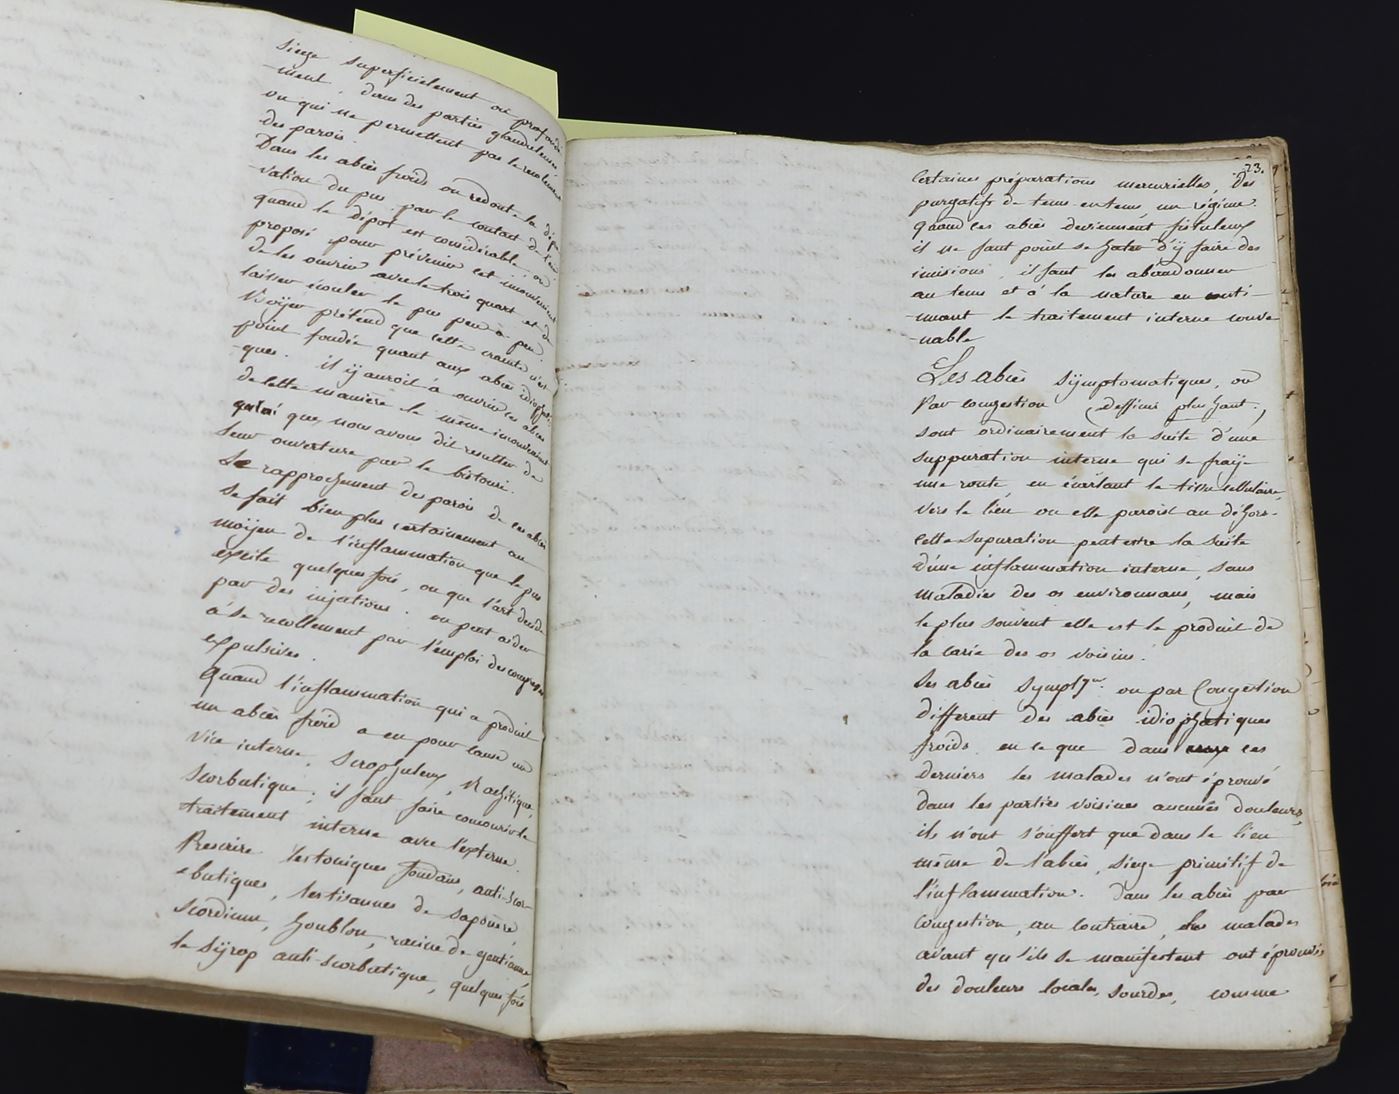 siege superficielement ou profonde
-ment, dans des parties glanduleuses
ou qui ne permettent pas le recolement
des parois.
Dans les abcès froids on redoute la dépra
-vation du pus par le contact de l'air
quand le dépot est considérable; on
proposé pour prévenir cet inconvenient
de les ouvrir avec le trois quart et de
laisser couler le pus peu à peu.
Boÿer prétend que cette crainte n'est
point fondée quant aux abcès idiopathi
-ques. il ÿ auroit à ouvrir ces abcès
de cette maniere le même inconvenient
que nous avons dit resulter de
leur ouverture par le bistouri.
Le rapprochement des parois de ces abcès
se fait bien plus certainement au
moÿen de l'inflammation que le pus
excite quelques fois, ou que l'art decide
par des injections. on peut aider
à se recollement par l'emploi des compresses
expulsives.
Quand l'inflammation qui a produit
un abcès froid a eu pour cause un
vice interne, scrophuleux, Rachitique,
scorbutique; il faut faire concourir le
traitement interne avec l'externe.
Prescrire les toniques fondans, anti-scor-
-butiques, les tisannes de saponere,
scordium, houblon, racine de gentianne,
le sÿrop anti-scorbutique, quelques fois
23.
certaines préparations mercurielles, des
purgatifs de tems en tems, un régime.
quand ces abcès deviennent fistuleux
il ne faut point se hater d'ÿ faire des
incisions, il faut les abandonner
au tems et à la nature en conti-
-nuant le traitement interne conve
-nable
Les abcès sÿmptomatiques, ou
Par congestion (deffinis plus haut,)
sont ordinairement la suite d'une
suppuration interne qui se fraÿe
une route en écartant le tissu cellulaire,
vers le lieu ou elle paroit au dehors.
cette supuration peut etre la suite
d'une inflammation interne, sans
maladies des os environnans, mais
le plus souvent elle est le produit de
la carie des os voisins.
Les abcès sympt.ques ou par Congestion
different des abcès idiopathiques
froids en ce que dans ces
derniers les malades n'ont éprouvé
dans les parties voisines aucunes douleurs,
ils n'ont souffert que dans le lieu
même de l'abcès, siege primitif de
l'inflammation. dans les abcès par
congestion, au contraire, les malades
avant qu'ils se manifestent ont éprouvés
des douleurs locales, sourdes, comme